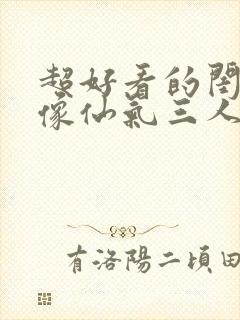 超好看的閨
像仙氣三人
有洛陽二頃田